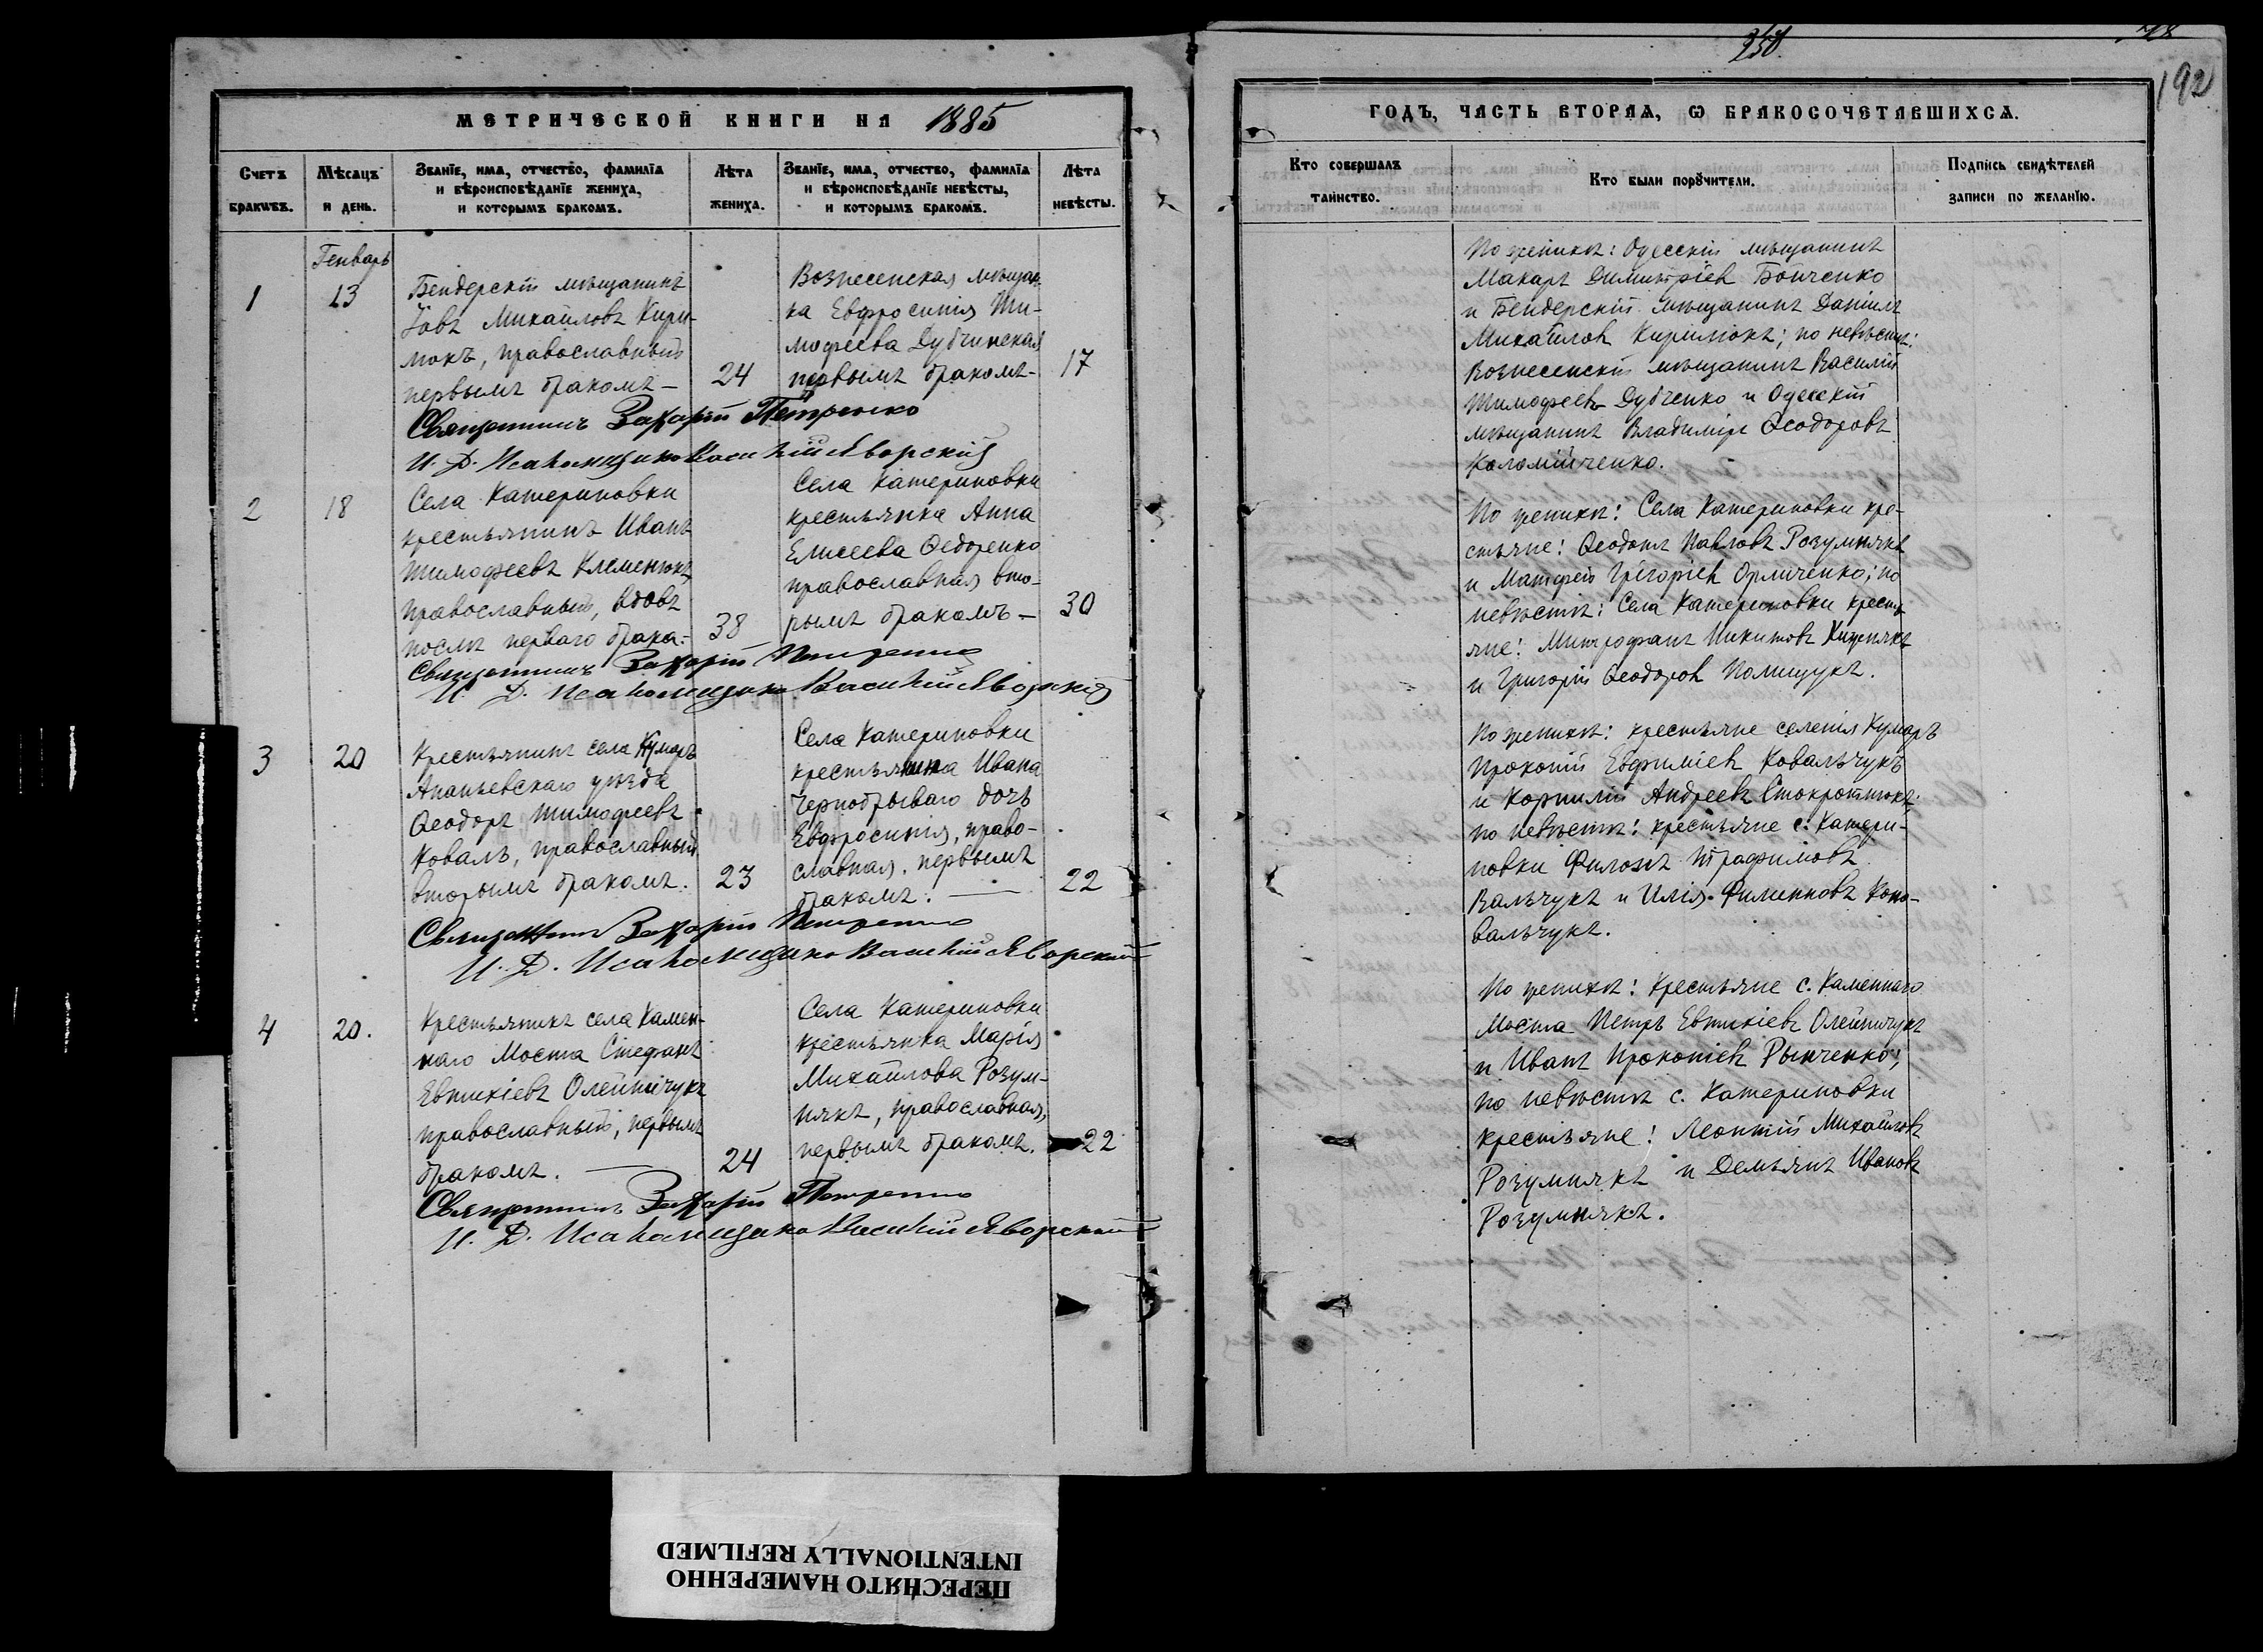 МЕТРИЧЕСКОЙ КНИГИ НА 1885
Счетъ бракѡвъ.
Мѣсяцъ и день.
Званїе, имѧ, отчество, фамилїа
и вѣроисповѣданїе жениха,
и которымъ бракомъ.
Лѣта жениха.
Званїе, имѧ, отчество, фамилїа
и вѣроисповѣданїе невѣсты,
и которымъ бракомъ.
Лѣта невѣсты.
Генварь
1
13
Бендерскій мѣщанинъ
Іовъ Михайловъ Кири-
мокъ, православный
первымъ бракомъ —
24
Вознесенская мѣщан-
ка Евфросинія Ти-
мофеева Дубчинская
первымъ бракомъ —
17
Священникъ Захарій Петренко
И. Д. Псаломщика Василій Яворскій
2
18
Села Катериновки
крестьянинъ Иванъ
Тимофеевъ Клеменюкъ,
православный, вдовъ
послѣ перваго брака. —
38
Села Катериновки
крестьянка Анна
Елисеева Ѳедоренко
православная вто-
рымъ бракомъ —
30
Священникъ Захарій Петренко
И. Д. Псаломщика Василій Яворскій
3
20
Крестьянинъ села Кумаръ
Ананьевскаго уѣзда
Ѳеодоръ Тимофеевъ
Коваль, православный
вторымъ бракомъ.
23
Села Катериновки
крестьянина Ивана
Чернобрываго дочь
Евфросинія, право-
славная, первымъ
бракомъ. —
22
Священникъ Захарій Петренко
И. Д. Псаломщика Василій Яворскій
4
20.
Крестьянинъ села Камен-
наго Моста Стефанъ
Евтихіевъ Олейничукъ
православный, первымъ
бракомъ. —
24
Села Катериновки
крестьянка Марія
Михайлова Розум-
някъ, православная,
первымъ бракомъ.
22
Священникъ Захарій Петренко
И. Д. Псаломщика Василій Яворскій
192
ГОДЪ, ЧАСТЬ ВТОРАѦ, Ѡ БРАКОСОЧЕТАВШИХСѦ.
Кто совершалъ
таинство.
Кто были порꙋчители.
Подпись свидѣтелей
записи по желанїю.
По женихѣ: Одесскій мѣщанинъ
Макаръ Димитріевъ Бойченко
и Бендерскій мѣщанинъ Даніилъ
Михайловъ Киримокъ; по невѣстѣ:
Вознесенскій мѣщанинъ Василій
Тимофеевъ Дубченко и Одесскій
мѣщанинъ Владиміръ Ѳеодоровъ
Коломійченко.
По женихѣ: Села Катериновки кре-
стьяне: Ѳеодотъ Павловъ Розумнякъ
и Матфей Григоріевъ Орличенко; по
невѣстѣ: Села Катериновки кресть-
яне: Митрофанъ Никитовъ
и Григорій Ѳеодоровъ Полищукъ.
По женихѣ: крестьяне селенія Кумаръ
Прокопій Евфиміевъ Ковальчукъ
и Корнилій Андреевъ
по невѣстѣ: крестьяне с. Катери-
новки Филонъ Трафимовъ
Вальчукъ и Илія Филимновъ Коно-
вальчукъ.
По женихѣ: Крестьяне с. Каменнаго
Моста Петръ Евтихіевъ Олейничукъ
и Иванъ Прокопіевъ Рынченко;
по невѣстѣ с. Катериновки
крестьяне: Леонтій Михайловъ
Розумнякъ и Демьянъ Ивановъ
Розумнякъ.
ПЕРЕСНЯТО НАМЕРЕННО
INTENTIONALLY REFILMED